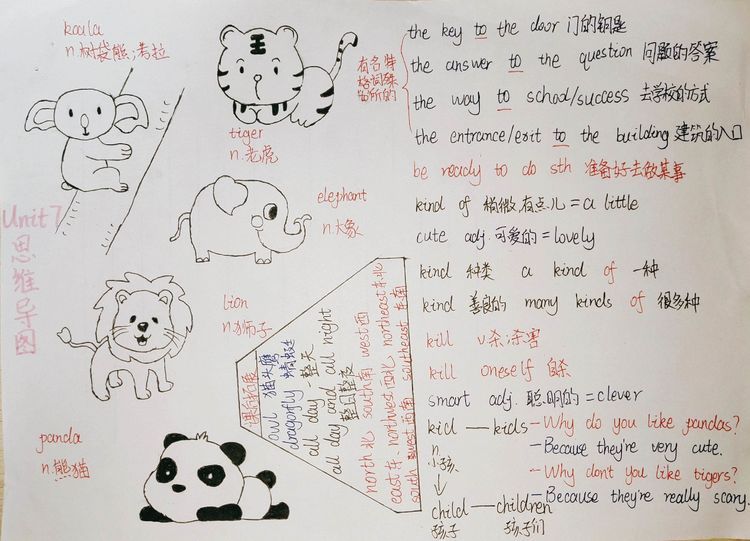 Unit 7
思维导图
koala
n.树袋熊;考拉
tiger
n.老虎
elephant
n.大象
lion
n.狮子
panda
n.熊猫
有名特
格词殊
留所的
the key to the door 门的钥匙
the answer to the question 问题的答案
the way to school/success 去学校的方式
the entrance/exit to the building 建筑的入口
be ready to do sth 准备好去做某事
kind of 稍微,有点儿=a little
cute adj.可爱的=lovely
kind 种类 a kind of 一种
kind 善良的 many kinds of 很多种
kill v.杀;杀害
kill oneself 自杀
smart adj. 聪明的=clever
kid—kids
n.
小孩
↓
child—children
孩子 孩子们
-Why do you like pandas?
-Because they're very cute.
-Why don't you like tigers?
-Because they're really scary.
课后拓展
owl 猫头鹰
dragonfly 蜻蜓
all day 一整天
all day and all night
整日整夜
north 北 south 南 west 西
east 东 northwest 西北 northeast 东北
southwest 西南 southeast 东南